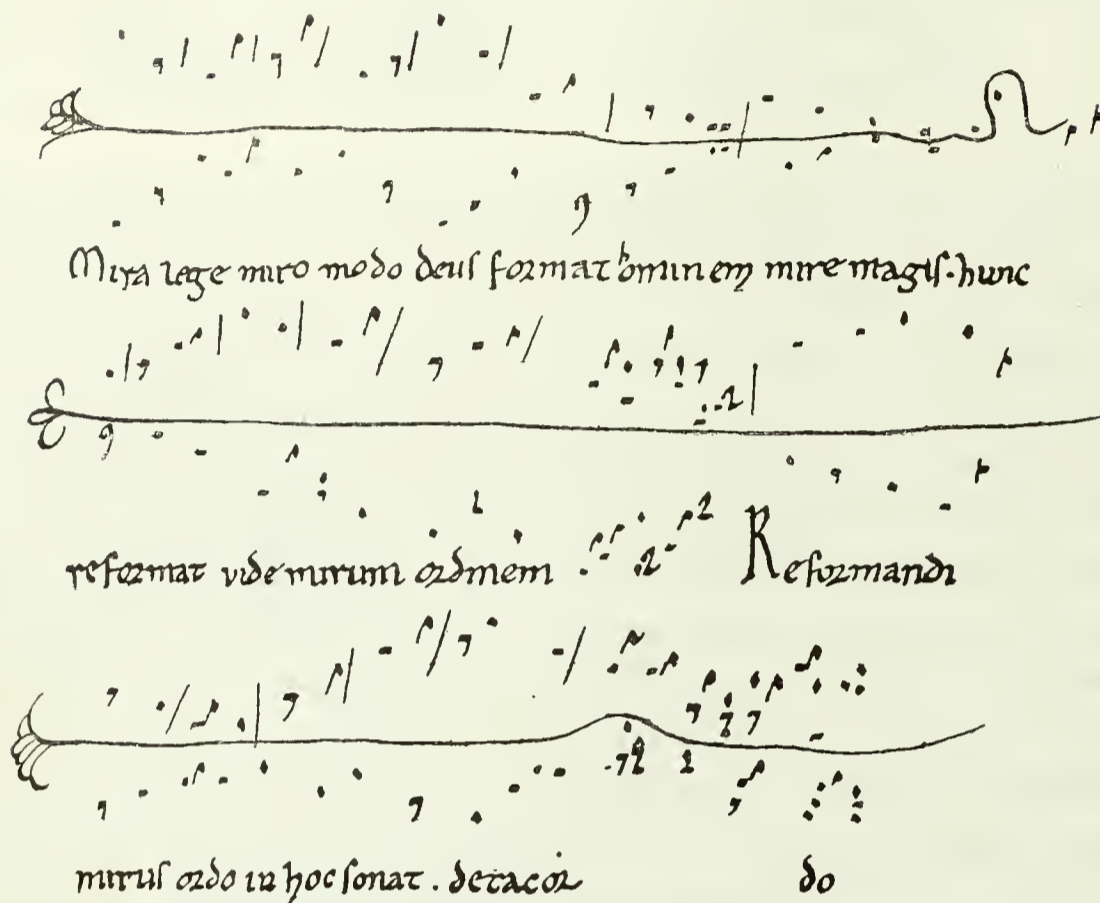 Mira lege miro modo deus format hominem mire magis. hunc
reformat vide mirum ordinem Reformandi
mirus ordo in hoc sonat. detacor do